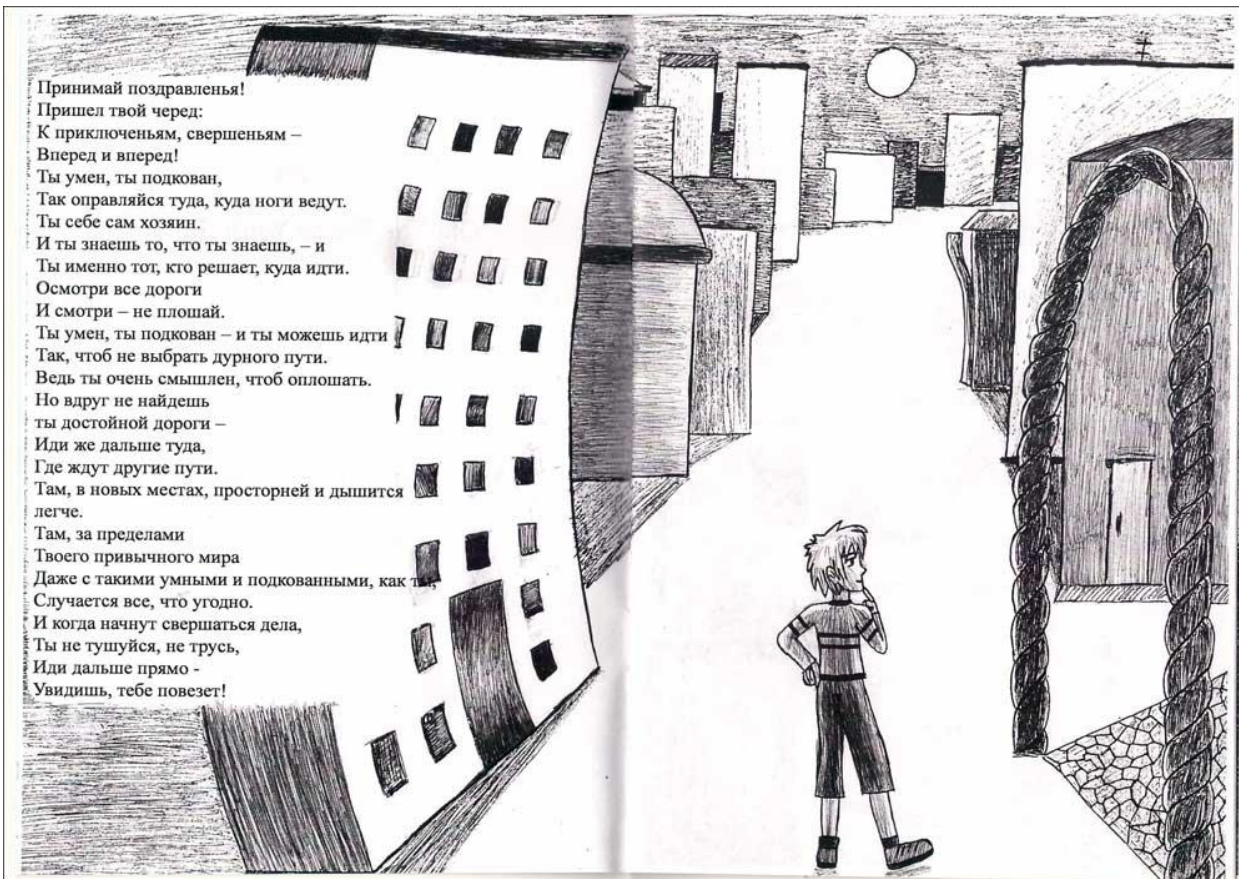 Принимай поздравленья!
Пришел твой черед:
К приключеньям, свершеньям –
Вперед и вперед!
Ты умен, ты подкован,
Так оправляйся туда, куда ноги ведут.
Ты себе сам хозяин.
И ты знаешь то, что ты знаешь, – и
Ты именно тот, кто решает, куда идти.
Осмотри все дороги
И смотри – не плошай.
Ты умен, ты подкован – и ты можешь идти
Так, чтоб не выбрать дурного пути.
Ведь ты очень смышлен, чтоб оплошать.
Но вдруг не найдешь
ты достойной дороги –
Иди же дальше туда,
Где ждут другие пути.
Там, в новых местах, просторней и дышится
легче.
Там, за пределами
Твоего привычного мира
Даже с такими умными и подкованными, как ты,
Случается все, что угодно.
И когда начнут свершаться дела,
Ты не тушуйся, не трусь,
Иди дальше прямо -
Увидишь, тебе повезет!